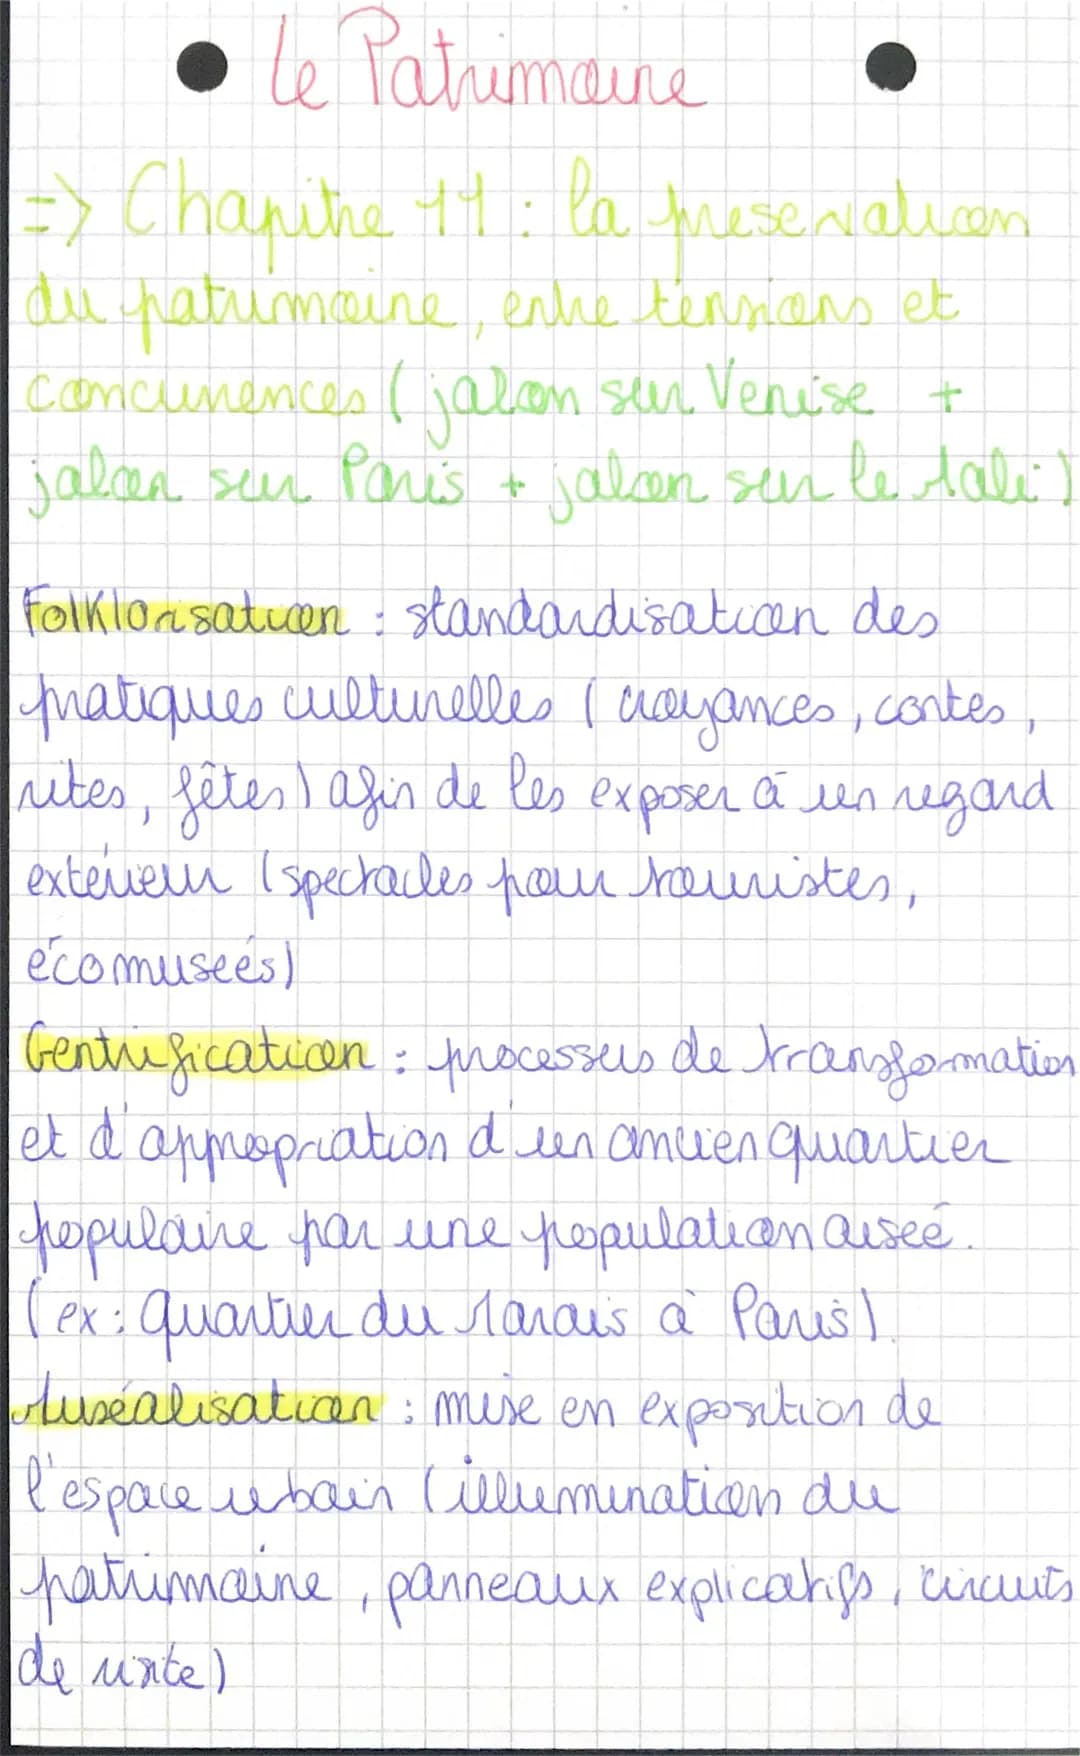 Le Patrimoine
=> Chapitre 11 : la préservation
du patrimoine, entre tensions et
concurrences (jalon sur Venise +
jalon sur Paris + jalon sur le Mali)
Folklorisation : standardisation des
pratiques culturelles (croyances, contes,
rites, fêtes) afin de les exposer à un regard
extérieur (spectacles pour touristes,
écomuseés)
Gentrification : processus de transformation
et d'appropriation d'un ancien quartier
populaire par une population aiseé.
(ex : quartier du Marais à Paris).
Muséalisation : mise en exposition de
l'espace urbain (illumination du
patrimoine, panneaux explicatifs, circuits
de visite)